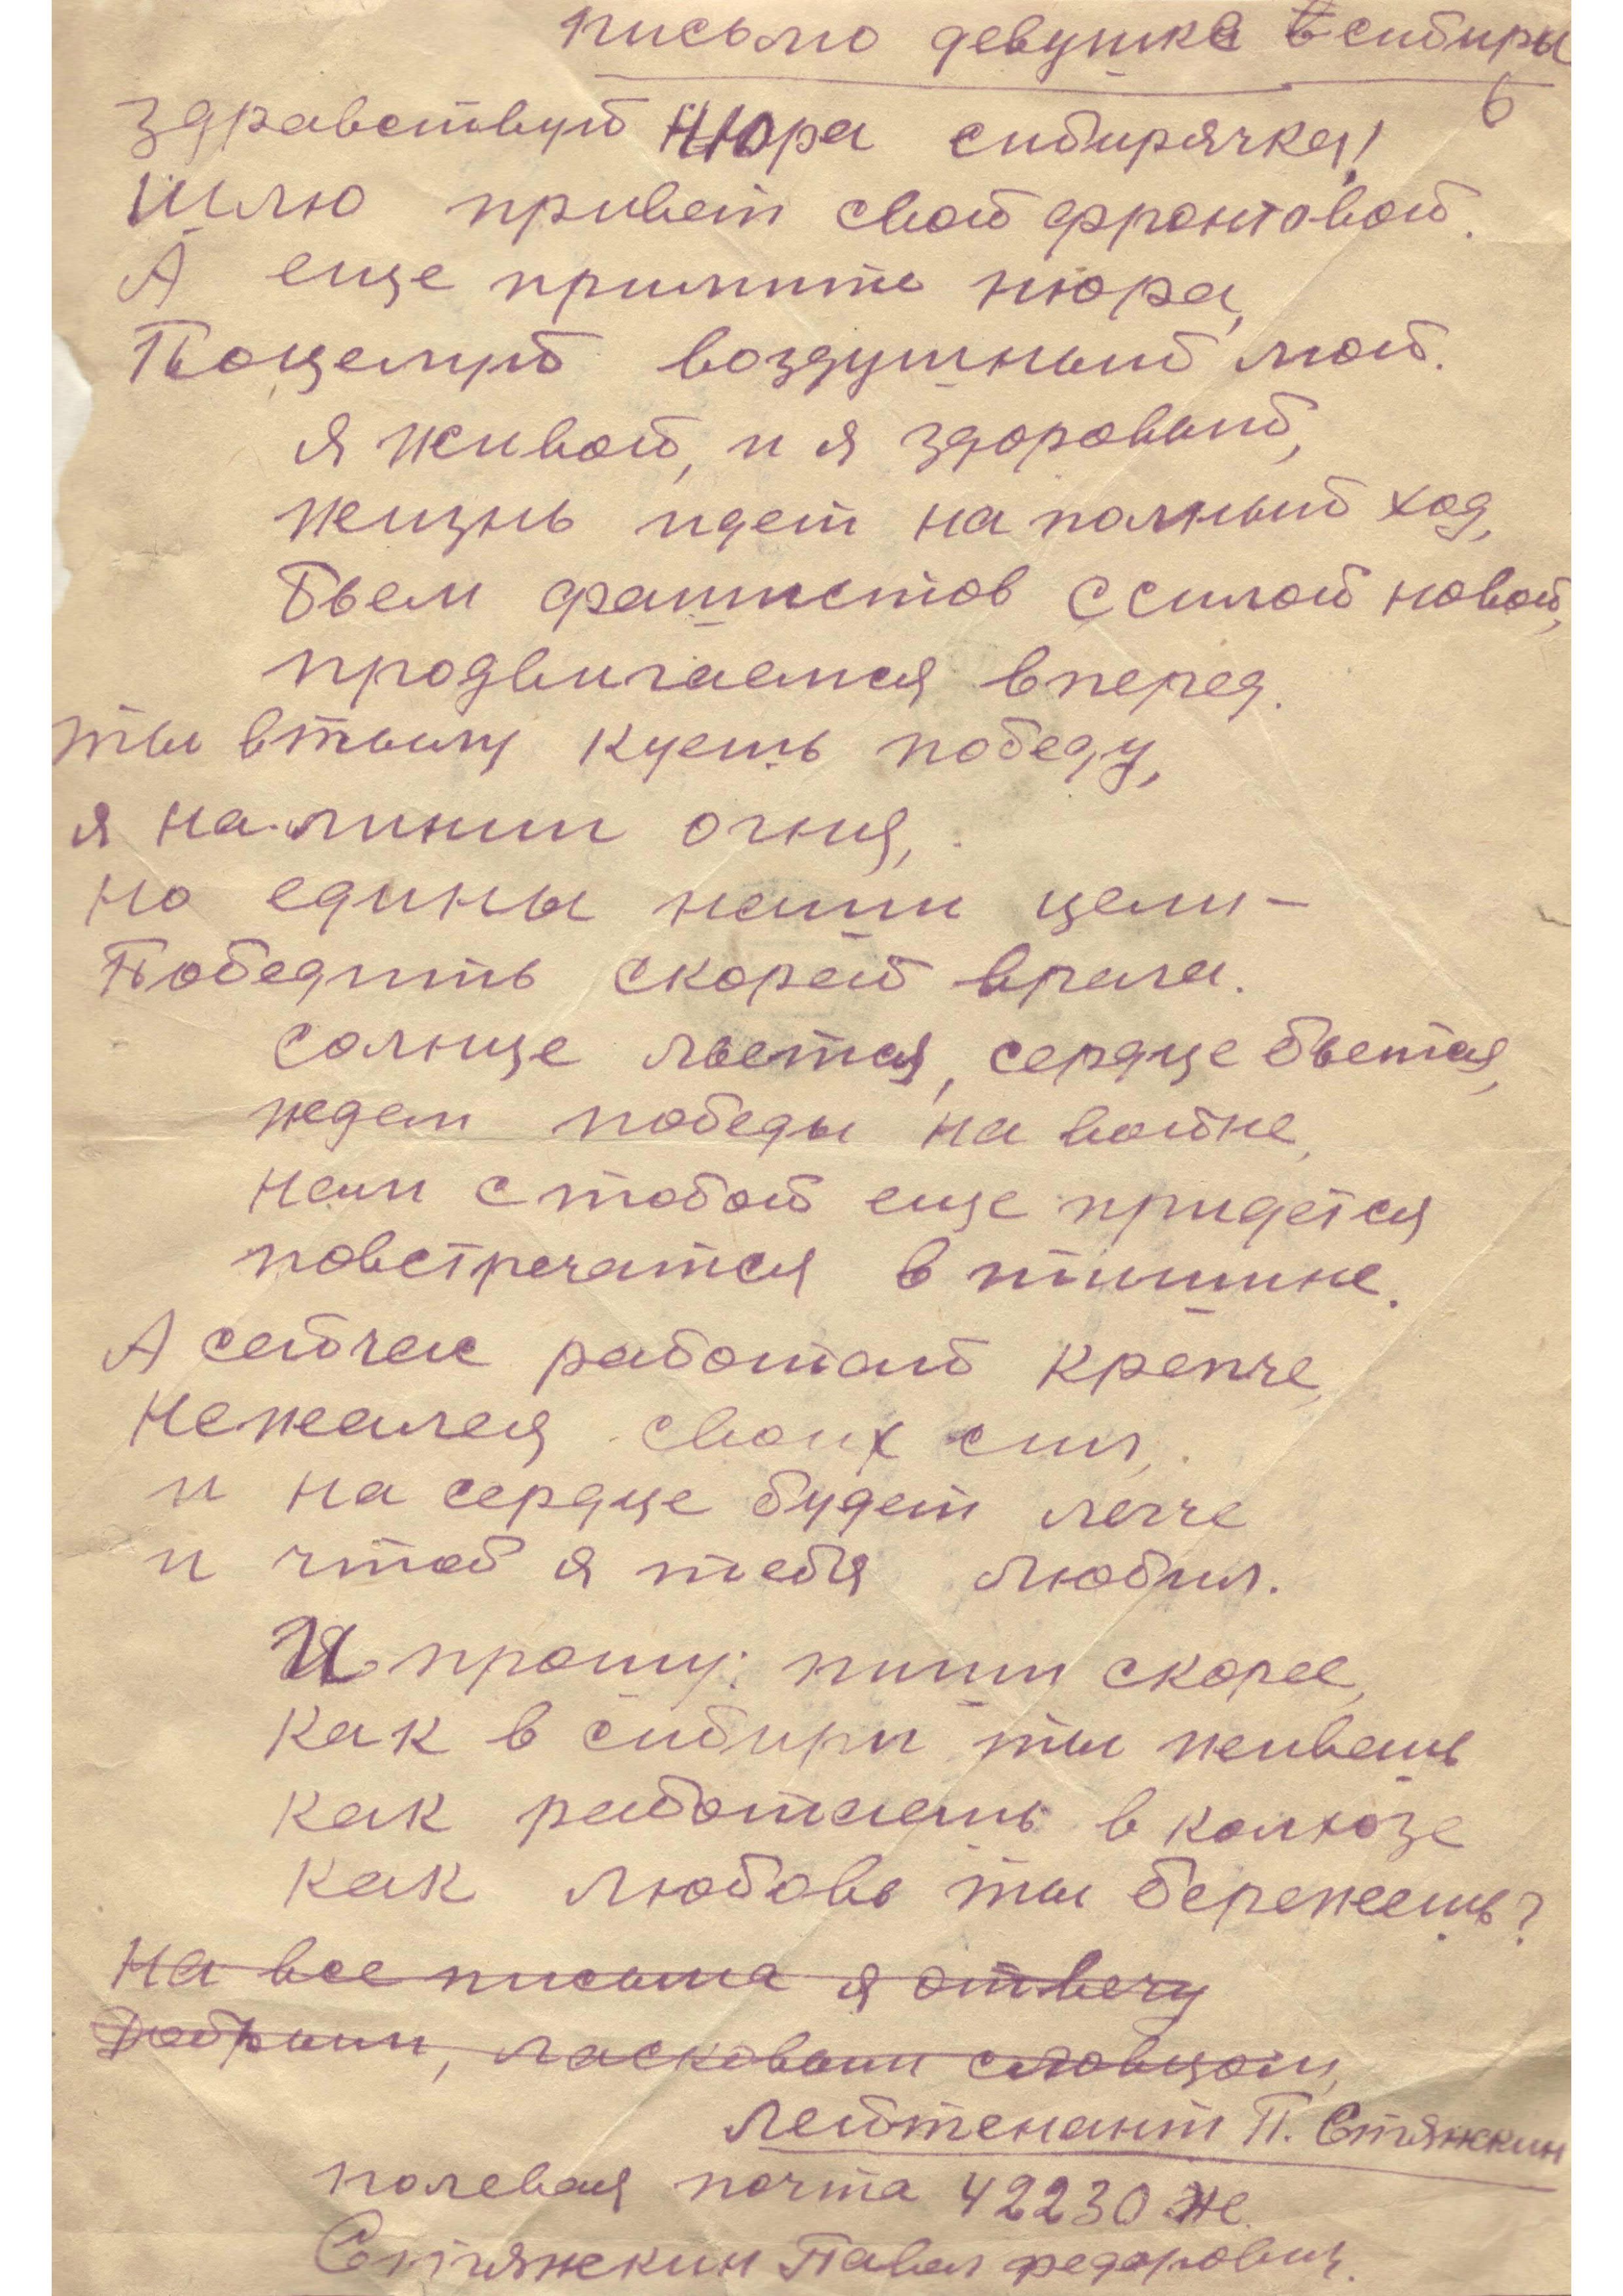 письмо девушке в сибирь
6
Здравствуй Нюра сибирячка!
Шлю привет свой фронтовой.
А еще примите нюра,
Поцелуй воздушный мой.
я живой, и я здоровый,
жизнь идет на полный ход,
бьем фашистов с силой новой,
продвигаемся вперед.
ты в тылу куешь победу,
я на линии огня,
но едины наши цели –
Победить скорей врага.
солнце льется, сердце бьется,
ждем победы на войне,
нам с тобой еще придется
повстречатся в тишине.
А сейчас работай крепче,
не жалея своих сил,
и на сердце будет легче
и чтоб я тебя любил.
Я прошу: пиши скорее,
как в сибири ты живешь
как работаешь в колхозе
как любовь ты бережешь?
На все письма я отвечу
Добрым, ласковым словцом,
лейтенант П. Стяжкин
полевая почта 42230 Ж.
Стяжкин Павел федорович.